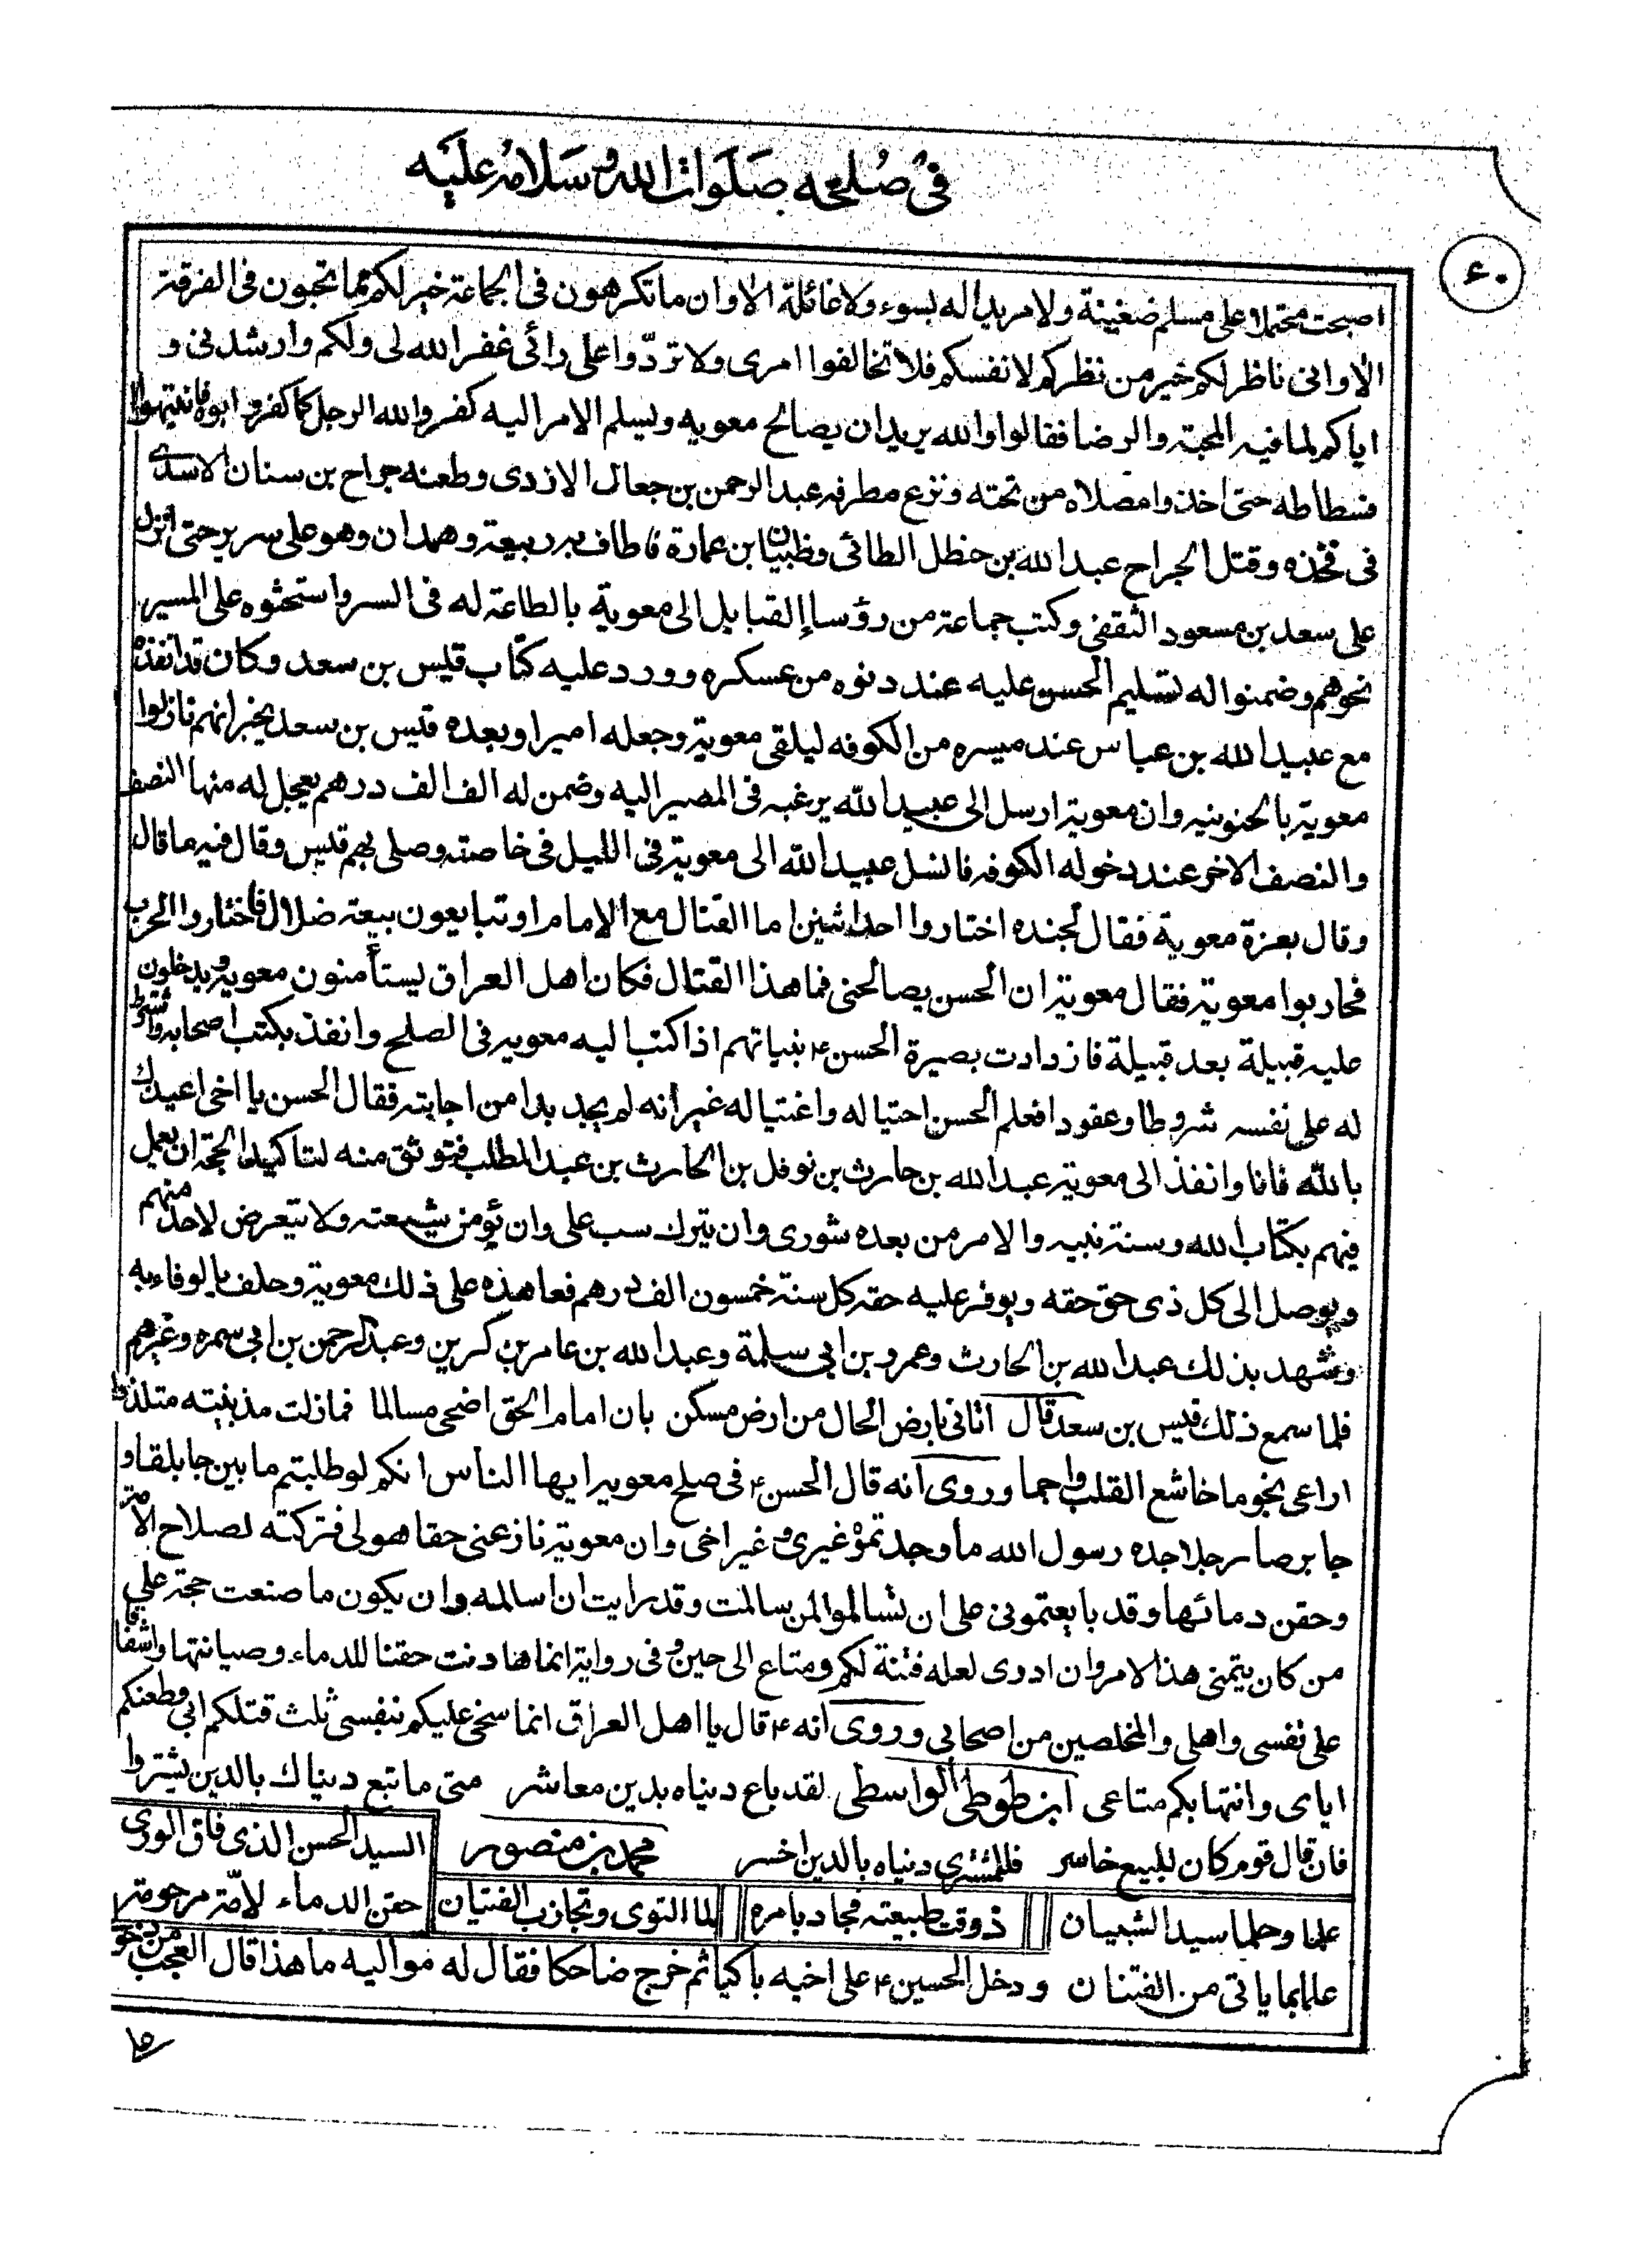 في صلحه صلوات الله وسلامه عليه
٤٠
اصبحت محتملا على مسلم ضغينة ولا مريدا له بسوء ولا غائلة الا وان ما تكرهون فى الجماعة خير لكم مما تحبون فى الفرقة
الا وانى ناظر لكم خير من نظركم لانفسكم فلا تخالفوا امرى ولا تردّوا على رائى غفر الله لى ولكم وارشدنى و
اياكم لما فيه المحبة والرضا فقالوا والله يريد ان يصالح معويه ويسلم الامر اليه كفر والله الرجل كما كفر ابوه فانتهبوا
فسطاطه حتى اخذوا مصلاه من تحته ونزع مطرفه عبد الرحمن بن جعال الازدى وطعنه جراح بن سنان الاسدى
فى فخذه وقتل الجراح عبد الله بن حنظل الطائى وظبيان ابن عمارة فاطاف به ربيعة وهمدان وهو على سرير حتى انزل
على سعد بن مسعود الثقفى وكتب جماعة من رؤساء القبايل الى معوية بالطاعة له فى السر واستحثوه على المسير
نحوهم وضمنوا له تسليم الحسن عليه عند دنوه من عسكره وورد عليه كتاب قيس بن سعد وكان قد انفذه
مع عبيد الله بن عباس عند ميسره من الكوفه ليلقى معوية وجعله اميرا وبعده قيس بن سعد يخبر انهم نازلوا
معوية بالحنونيه وان معوية ارسل الى عبيد الله يرغبه فى المصير اليه وضمن له الف الف درهم يعجل له منها النصف
والنصف الاخر عند دخوله الكوفه فانسل عبيد الله الى معوية فى الليل فى خاصته وصلى بهم قيس وقال فيه ما قال
وقال بعزة معوية فقال لجنده اختاروا احد اثنين اما القتال مع الامام او تبايعون بيعة ضلال فاختاروا الحرب
فحاربوا معوية فقال معوية ان الحسن يصالحنى فما هذا القتال فكان اهل العراق يستأمنون معوية ويدخلون
عليه قبيلة بعد قبيلة فازدادت بصيرة الحسن ؑ بنياتهم اذا كتب اليه معويه فى الصلح وانفذ بكتب اصحابه واشترط
له على نفسه شروطا وعقودا فعلم الحسن احتياله واغتياله غير أنه لم يجد بدا من اجابته فقال الحسن يا اخى اعيذك
بالله فانا وانفذ الى معوية عبد الله بن حارث بن نوفل بن الحارث بن عبد المطلب فتوثق منه لتاكيد الحجة ان يعمل
فيهم بكتاب الله وسنة نبيه والامر من بعده شورى وان يترك سب على وان يؤمن شيعته ولا يتعرض لاحد منهم
ويوصل الى كل ذى حق حقه ويوفر عليه حقه كل سنة خمسون الف درهم فعاهذه على ذلك معوية وحلف بالوفاء به
وشهد بذلك عبد الله بن الحارث وعمرو بن ابى سلمة وعبد الله بن عامر بن كرين وعبد الرحمن بن ابى سمره وغيرهم
فلما سمع ذلك قيس بن سعد قال اتانى بارض الحال من ارض مسكن بان امام الحق اضحى مسالما فما زلت مذ بنيته متلذذا
اراعى نجوما خاشع القلب واجما وروى انه قال الحسن ؑ فى صلح معويه ايها الناس انكم لو طلبتم ما بين جابلقا و
جابرصا رجلا جده رسول الله ما وجدتموه غيرى وغير اخى وان معوية نازعنى حقا هو لى فتركته لصلاح الامة
وحقن دمائها وقد بايعتمونى على ان تسالموا لمن سالمت وقد رايت ان اسالمه وان يكون ما صنعت حجة على
من كان يتمنى هذا الامر وان ادرى لعله فتنة لكم ومتاع الى حين وفى رواية انما هادنت حقنا للدماء وصيانتها واشفاقا
على نفسى واهلى والمخلصين من اصحابى وروى انه ؑ قال يا اهل العراق انما سخى عليكم بنفسى ثلث قتلكم ابى وطعنكم
اياى وانتهابكم متاعى ابن طوطى الواسطى لقد باع دنياه بدين معاشر متى ما تبع دنياك بالدين يشتروا
فان قال قوم كان للبيع خاسر فللمشترى دنياه بالدين اخسر محمد بن منصور السيد الحسن الذى فاق الورى
علما وحلما سيد الشبيان ذوقت طبيعته فجاد بامره لما التوى وتجاذب الفتيان حقن الدماء لامّة مرحومة
علما بما ياتى من الفتنان ودخل الحسين ؑ على اخيه باكيا ثم خرج ضاحكا فقال له مواليه ما هذا قال العجب من دخو